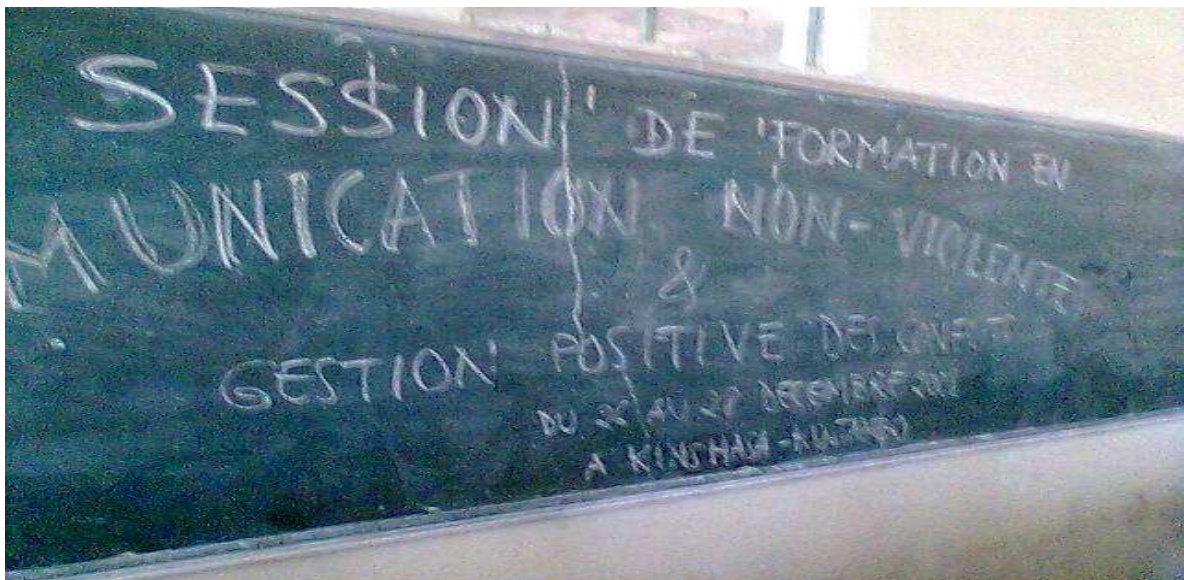 SESSION DE FORMATION EN
MUNICATION NON-VIOLENTE
&
GESTION POSITIVE DES
DU AU DECEMBRE
A KINSHASA